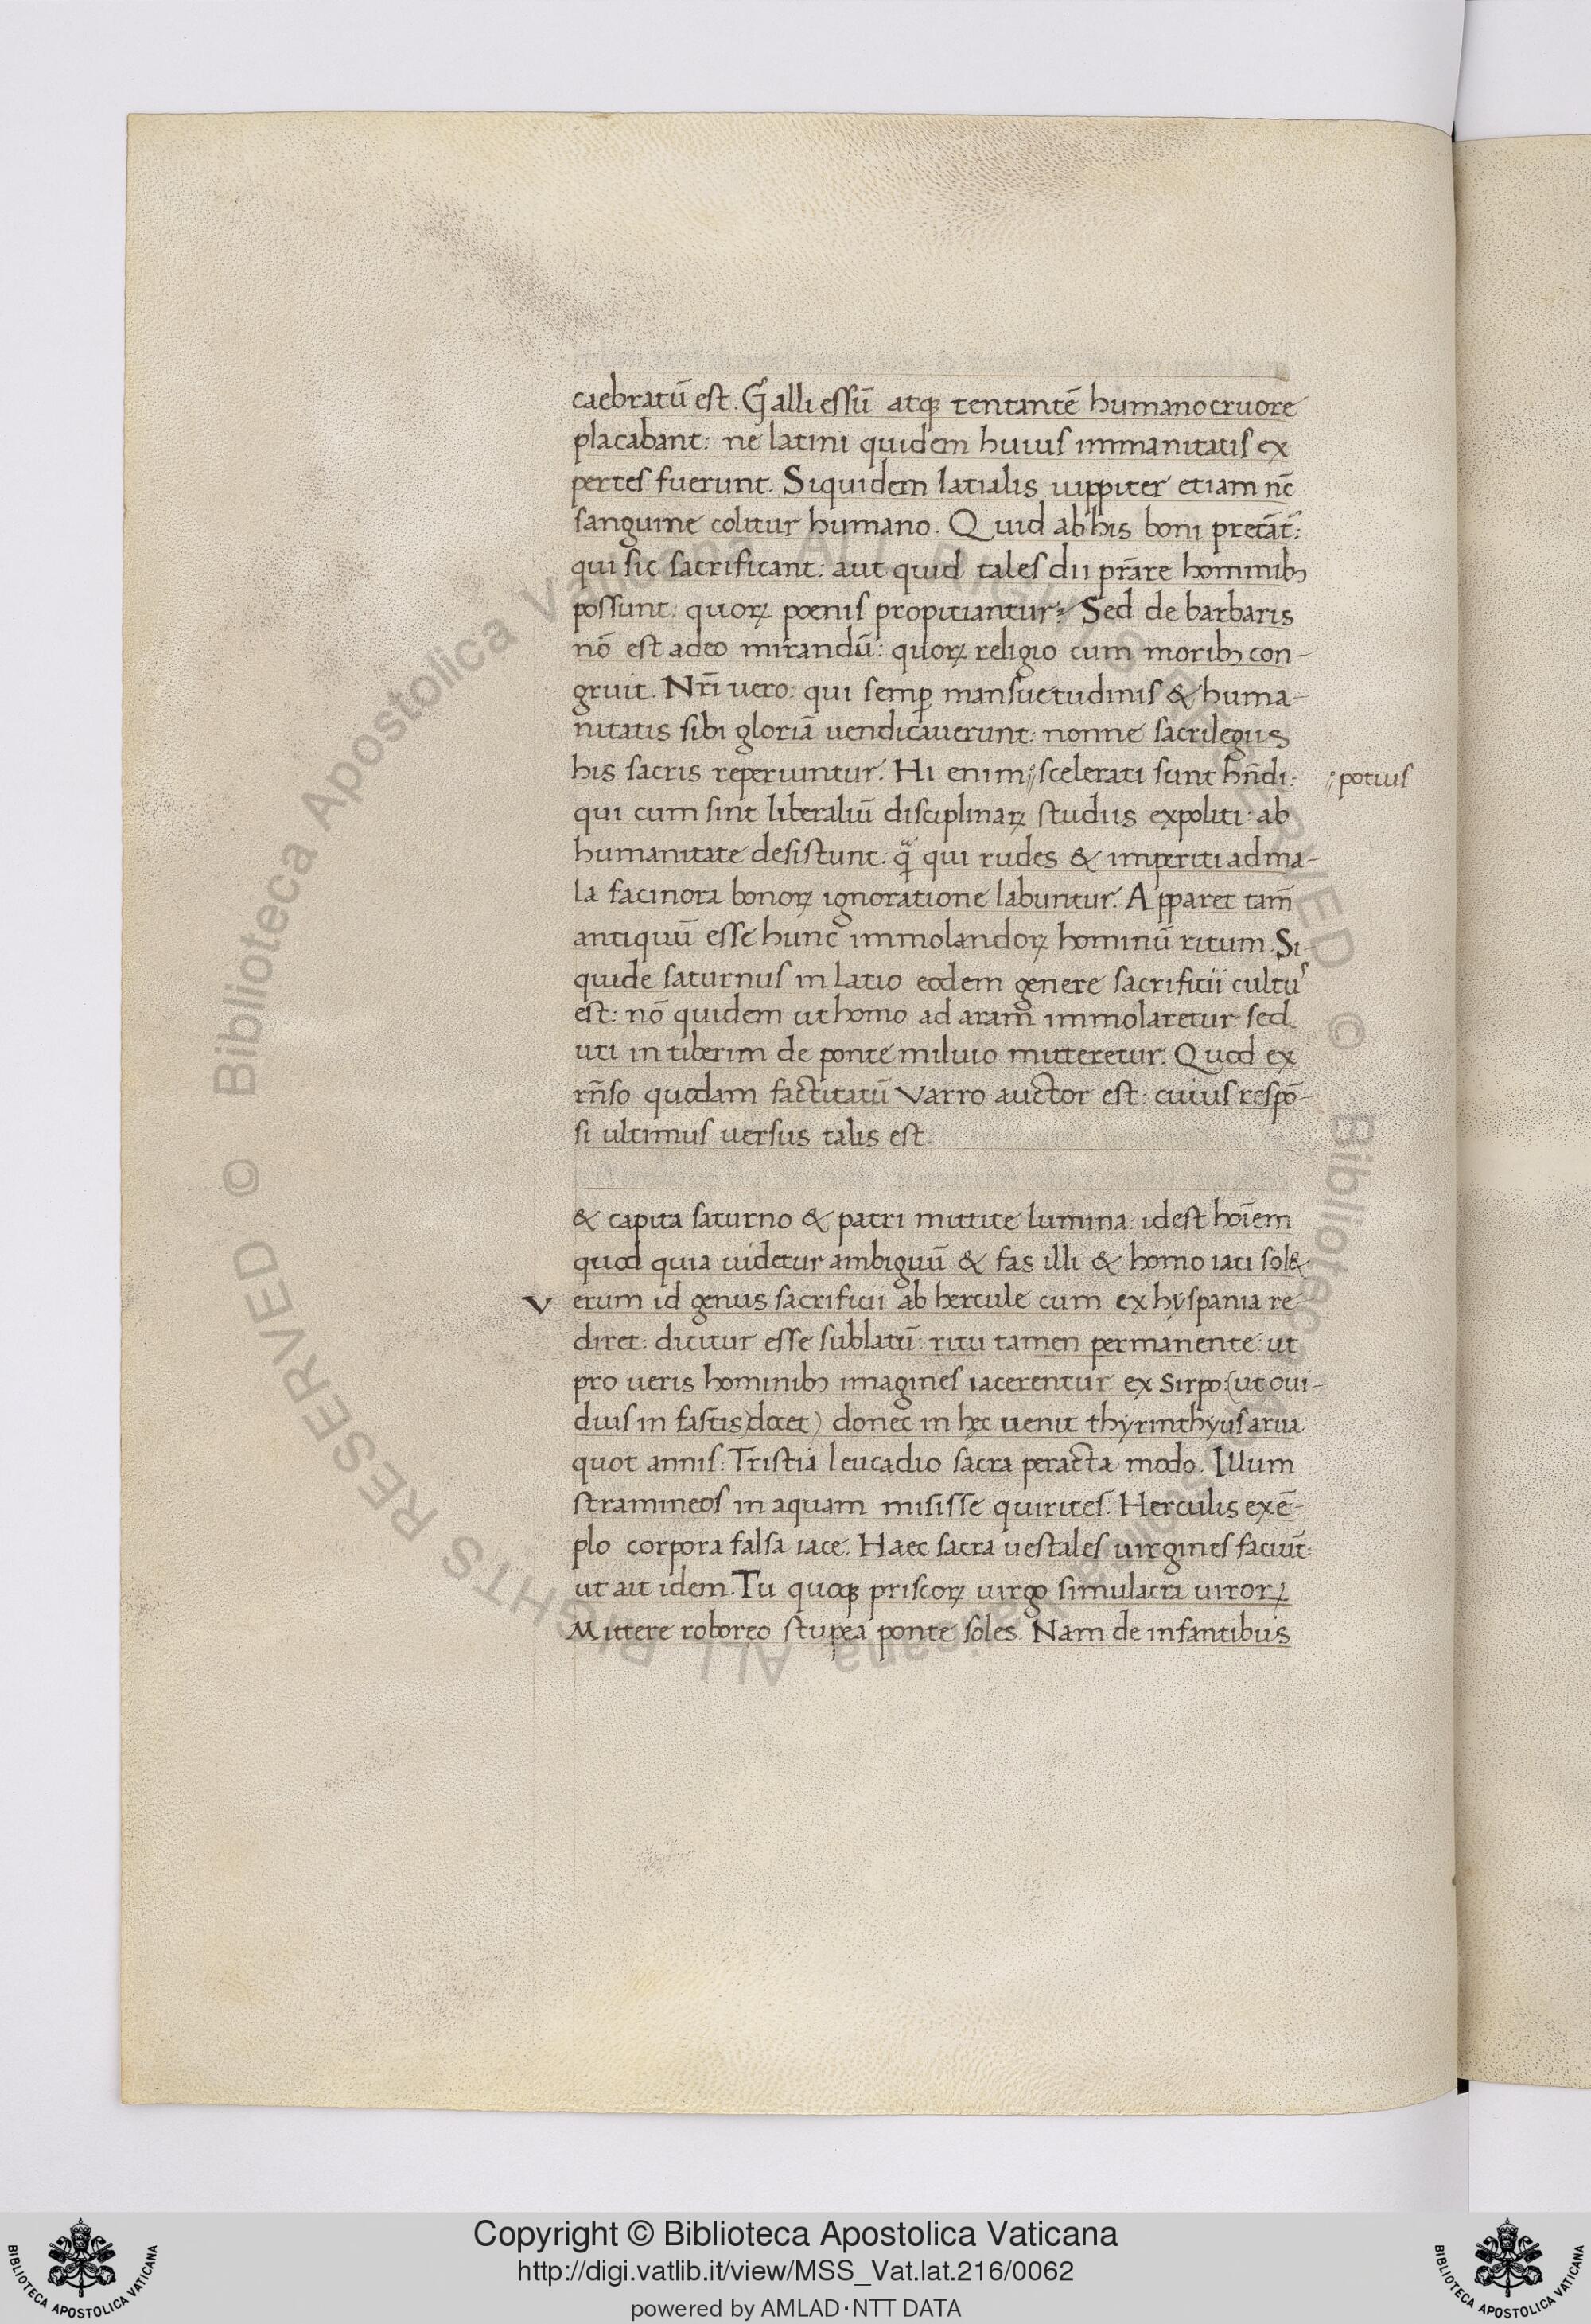 caebratū est. Galli essū atq; tentantē humano cruore
placabant: ne latini quidem huius immanitatis ex
pertes fuerunt. Siquidem latialis iuppiter etiam nc̄
sanguine colitur humano. Quid ab his boni precāt̄:
qui sic sacrificant: aut quid tales dii p̄rāre hominibꝫ
possunt: quoꝝ poenis propitiantur? Sed de barbaris
nō est adeo mirandū: quoꝝ religio cum moribꝫ con-
gruit. Nr̄i uero: qui semꝑ mansuetudinis & huma-
nitatis sibi gloriā uendicauerunt: nonne sacrilegus
his sacris reperiuntur. Hi enim scelerati sunt hn̄di:
potius
qui cum sint liberaliū disciplinaꝝ studiis expoliti: ab
humanitate desistunt. qͣ̄ qui rudes & imperiti ad ma-
la facinora bonoꝝ ignoratione labuntur. Apparet tam̄
antiquū esse hunc immolandoꝝ hominū ritum. Si-
quide saturnus in latio eodem genere sacrificii cultuˢ
est: nō quidem ut homo ad aram immolaretur: sed
uti in tiberim de ponte miluio mitteretur. Quod ex
rn̄so quodam factitatū Varro auctor est: cuius respō-
si ultimus uersus talis est.
& capita saturno & patri mittite lumina: idest hoīem
quod quia uidetur ambiguū & fas illi & homo iaci sol&
V erum id genus sacrificii ab hercule cum ex hyspania re
diret: dicitur esse sublatū: ritu tamen permanente: ut
pro ueris hominibꝫ imagines iacerentur ex sirpo: (ut oui-
dius in fastis) docet) donec in hęc uenit thyrinthyus arua
quot annis: Tristia leucadio sacra peracta modo. Illum
stramineos in aquam misisse quirites. Herculis exē-
plo corpora falsa iace. Haec sacra uestales uirgines faciūt:
ut ait idem. Tu quoq; priscoꝝ uirgo simulacra uiroꝝ
Mittere roboreo stupea ponte soles. Nam de infantibus
Copyright © Biblioteca Apostolica Vaticana
http://digi.vatlib.it/view/MSS_Vat.lat.216/0062
powered by AMLAD·NTT DATA